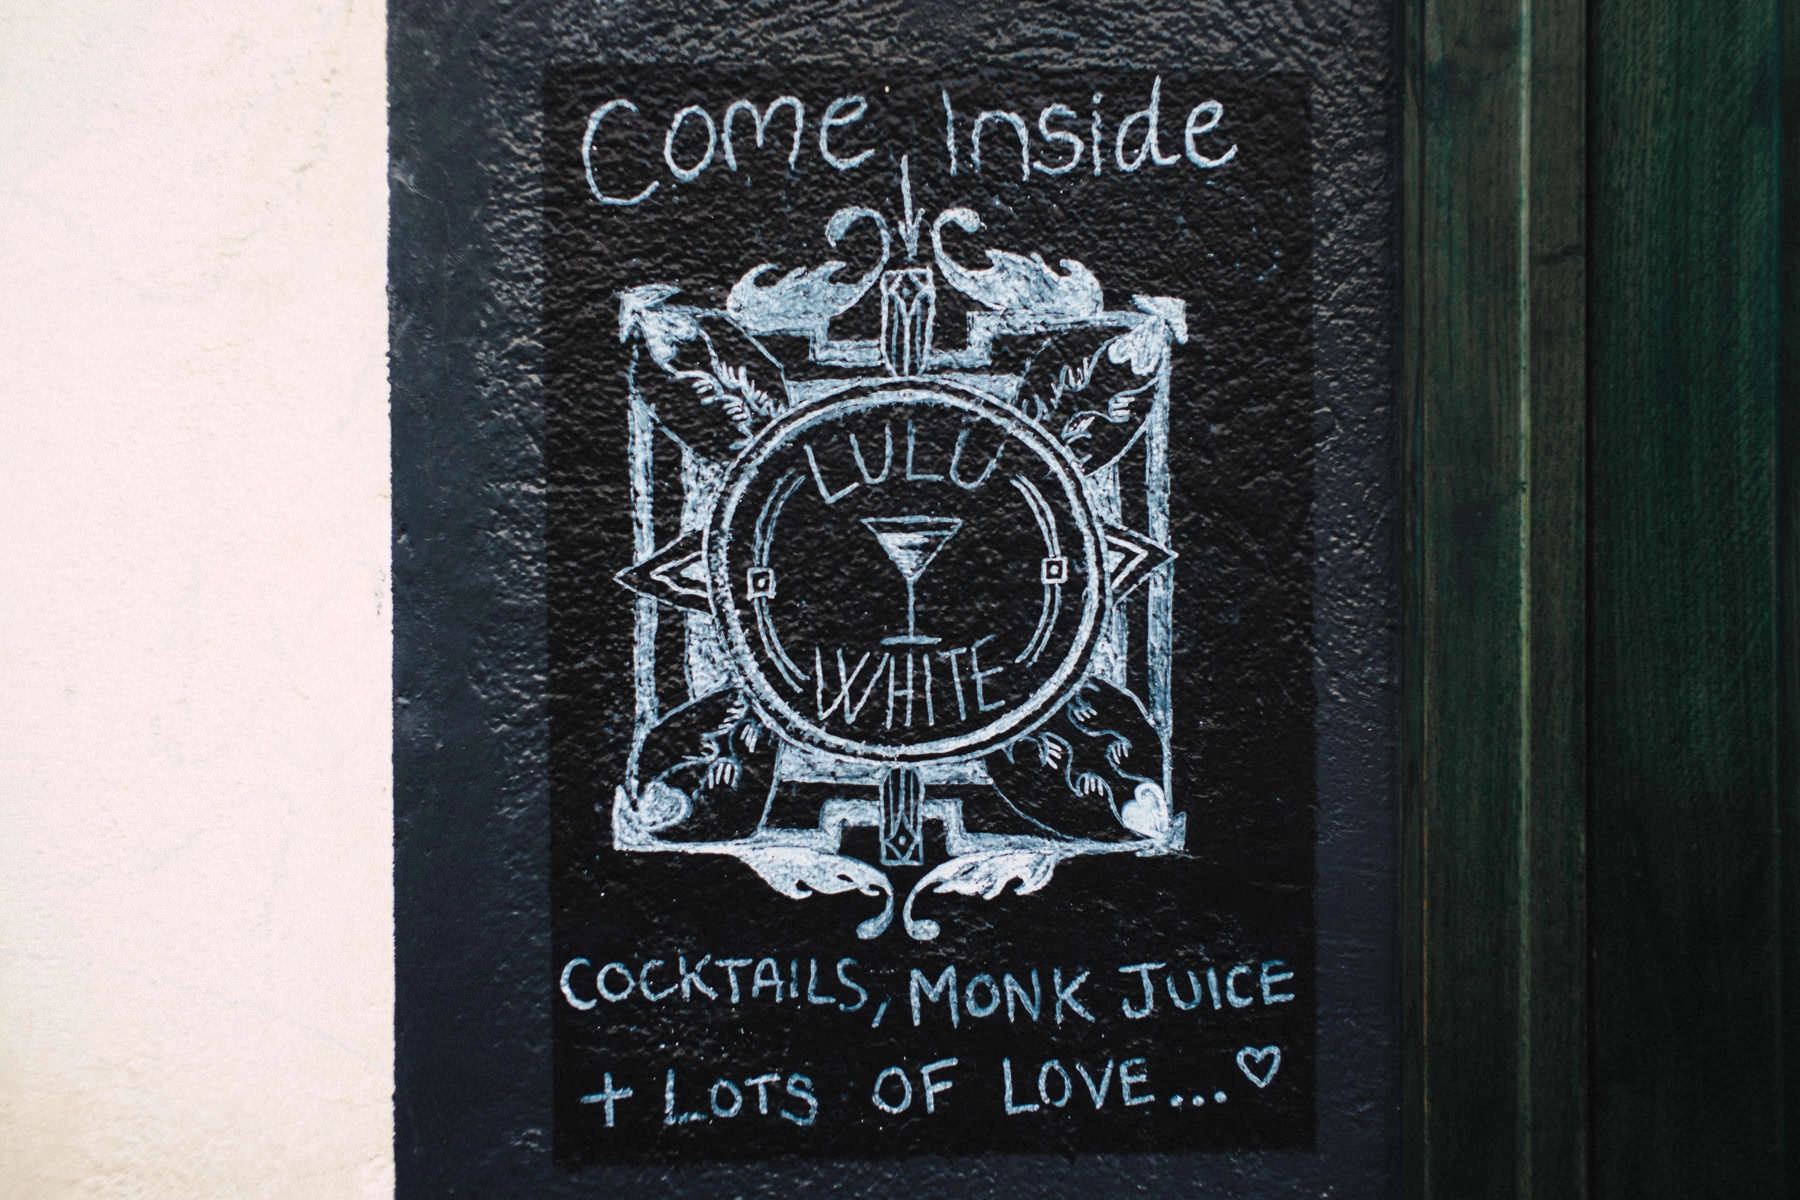 Come Inside
LULU
WHITE
COCKTAILS, MONK JUICE
+ LOTS OF LOVE... ♡